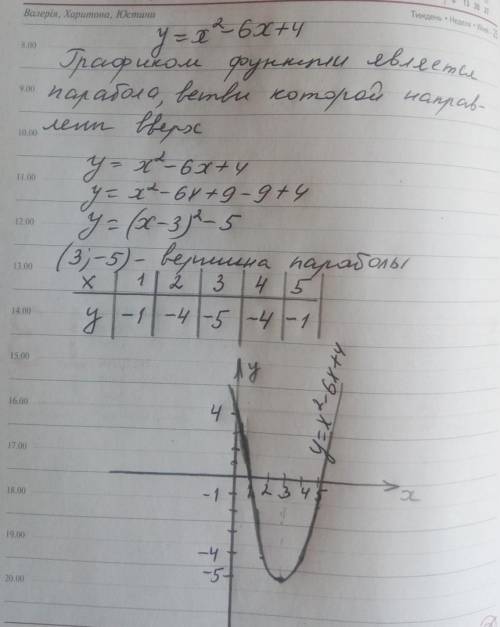 Валерія, Харитона, Юстина
Тиждень • Неделя •
y = x² - 6x + 4
8.00
Графиком функции является
9.00
парабола, ветви которой направ-
10.00
лени вверх
11.00
y = x² - 6x + 4
y = x² - 6x + 9 - 9 + 4
12.00
y = (x - 3)² - 5
13.00
(3; -5) - вершина параболы
x | 1 | 2 | 3 | 4 | 5
14.00
y | -1 | -4 | -5 | -4 | -1
15.00
y
y = x² - 6x + 4
16.00
4
17.00
18.00
-1 1 2 3 4 5 x
19.00
-4
20.00
-5